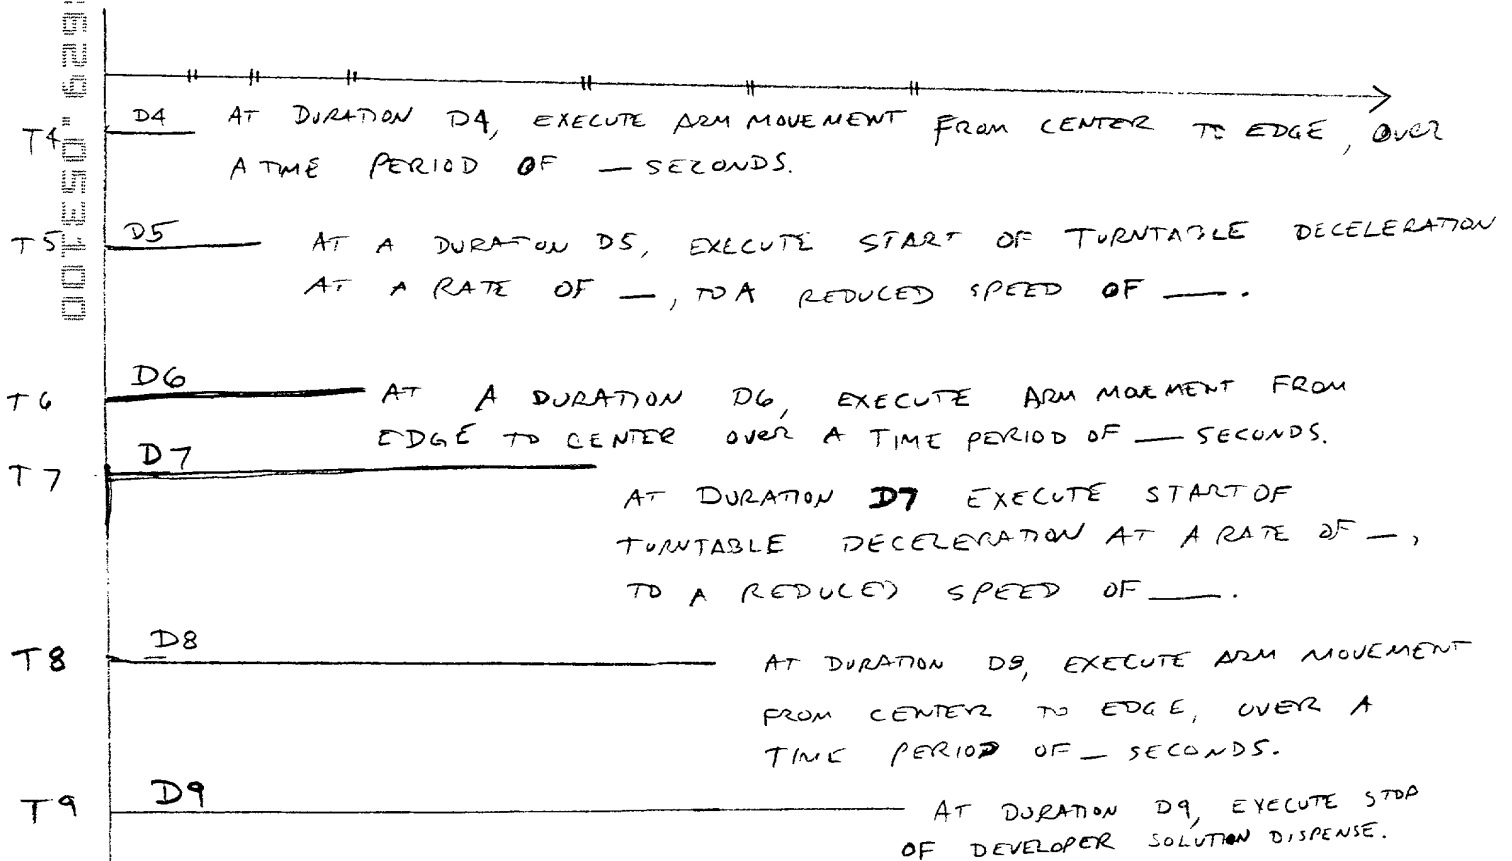 629 . 053100
T4 D4 AT DURATION D4, EXECUTE ARM MOVEMENT FROM CENTER TO EDGE, OVER
A TIME PERIOD OF — SECONDS.
T5 D5 AT A DURATON D5, EXECUTE START OF TURNTABLE DECELERATION
AT A RATE OF —, TO A REDUCED SPEED OF —.
T6 D6 AT A DURATION D6, EXECUTE ARM MOVEMENT FROM
EDGE TO CENTER OVER A TIME PERIOD OF — SECONDS.
T7 D7
AT DURATION D7 EXECUTE START OF
TURNTABLE DECELERATION AT A RATE OF —,
TO A REDUCED SPEED OF —.
T8 D8 AT DURATION D8, EXECUTE ARM MOVEMENT
FROM CENTER TO EDGE, OVER A
TIME PERIOD OF — SECONDS.
T9 D9 AT DURATION D9, EXECUTE STOP
OF DEVELOPER SOLUTION DISPENSE.